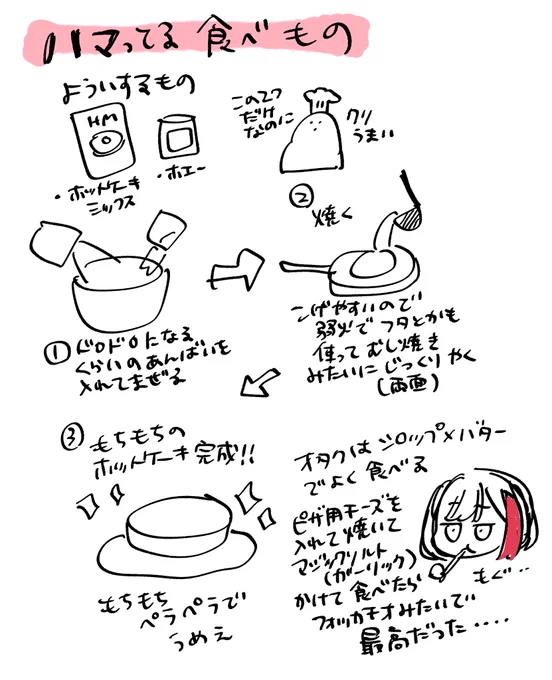 ハマってる 食べもの
よういするもの
HM
・ホットケーキ
ミックス
・ホエー
この2つ
だけ
なのに
クソ
うまい
① ドロドロになる
くらいのあんばいを
入れてまぜる
② 焼く
こげやすいので
弱火で フタとかも
使って むし焼き
みたいに じっくり やく
(両面)
③ もちもちの
ホットケーキ 完成!!
もちもち
ペラペラで
うめえ
オタクは シロップ×バター
でよく 食べる
ピザ用チーズを
入れて焼いて
マジックソルト
(ガーリック)
かけて 食べたら
フォッカチオみたいで
最高だった・・・・
もぐ・・